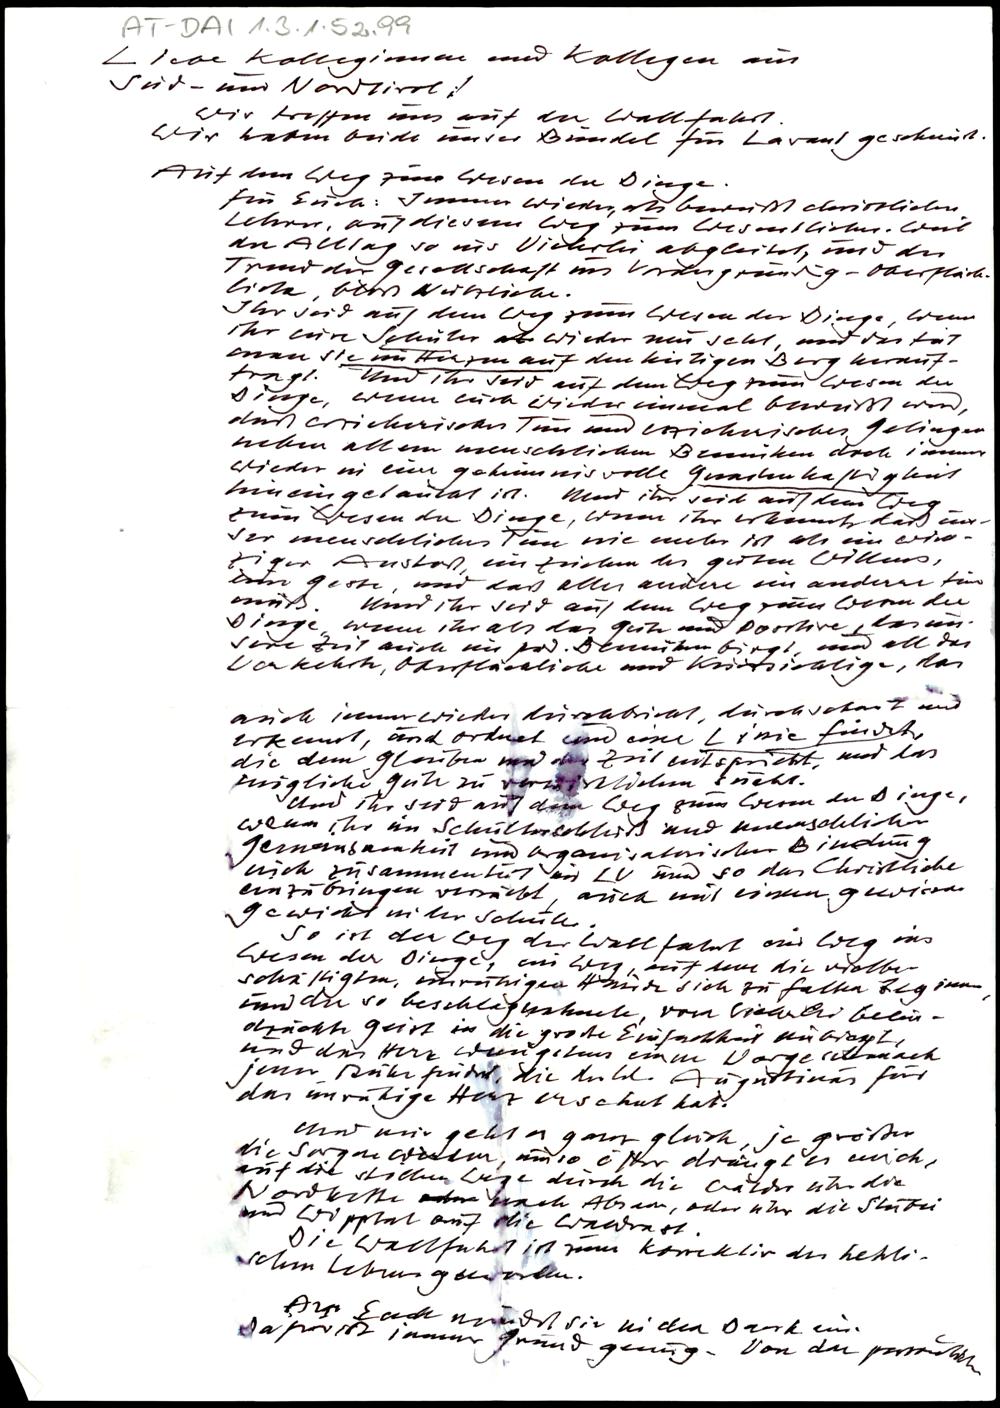 AT-DAI 1.3.1.52.99
Liebe Kolleginnen und Kollegen aus
Süd- und Nordtirol!
Wir treffen uns auf der Wallfahrt.
Wir haben beide unser Bündel für Lavant geschnürt.
Auf dem Weg zum Wesen der Dinge.
Für Euch: Immer wieder, als bewußt christlicher
Lehrer, auf diesem Weg zum Wesentlichen. Weil
der Alltag so ins Vielerlei abgleitet, und der
Trend der Gesellschaft ins Vordergründig-Oberfläch-
liche, bloß Nützliche.
Ihr seid auf dem Weg zum Wesen der Dinge, wenn
ihr eure Schüler wieder neu seht, und das tut
man sie im Herzen auf den heiligen Berg herauf-
trägt. Und ihr seid auf dem Weg zum Wesen der
Dinge, wenn euch wieder einmal bewußt wird,
daß erzieherisches Tun und erzieherisches Gelingen
neben allem menschlichen Bemühen doch immer
wieder in eine geheimnisvolle Gnadenhaftigkeit
hineingetaucht ist. Und ihr seid auf dem Weg
zum Wesen der Dinge, wenn ihr erkennt, daß un-
ser menschliches Tun nie mehr ist als ein win-
ziger Anstoß, ein Zeichen des guten Willens,
eine Geste, und daß alles andere ein anderer tun
muß. Und ihr seid auf dem Weg zum Wesen der
Dinge, wenn ihr all das Gute und Positive, das un-
sere Zeit auch im päd. Bemühen birgt, und all das
Verkehrte, Oberflächliche und Kurzsichtige, das
auch immer wieder durchbricht, durchschaut und
erkennt, und ordnet und eine Linie findet,
die dem Glauben und der Zeit entspricht, und das
mögliche Gute zu verwirklichen sucht.
Und ihr seid auf dem Weg zum Wesen der Dinge,
wenn ihr im und menschlicher
Gemeinsamkeit und organisatorischer Bindung
euch zusammentut im LV und so das Christliche
einzubringen versucht, auch mit einem gewissen
Gewicht in der Schule.
So ist der Weg der Wallfahrt ein Weg ins
Wesen der Dinge, ein Weg, auf dem die vielbe-
schäftigten, unruhigen Hände sich zu falten beginnen,
und der so beschlagnahmte, vom Vielerlei beein-
druckte Geist in die große Einfachheit einbiegt,
und das Herz wenigstens einen Vorgeschmack
jener Ruhe findet, die der hl. Augustinus für
das unruhige Herz ersehnt hat.
Und mir geht es ganz gleich, je größer
die Sorgen werden, umso öfter drängt es mich,
auf die stillen Wege durch die Wälder unter die
Nordkette nach Absam, oder über die Stubai
und Wipptal auf die Waldrast.
Die Wallfahrt ist zum Korrektiv des hekti-
schen Lebens geworden.
Am Ende mündet sie in den Dank ein.
Dafür ist immer Grund genug. Von der persönlichen